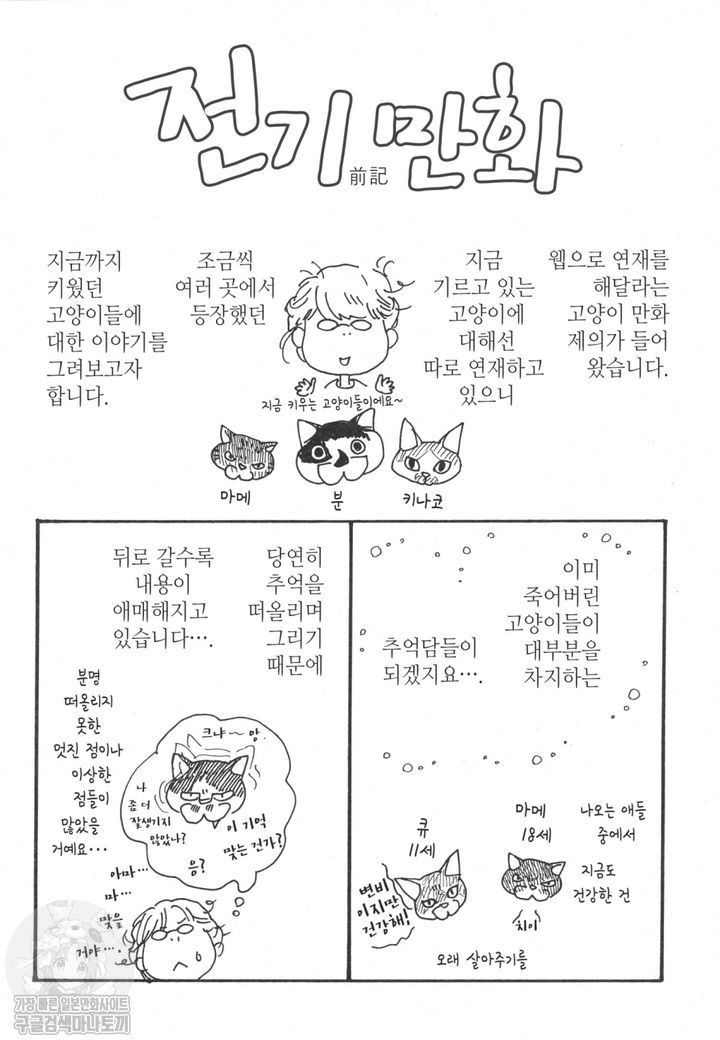 전기 만화
前記
웹으로 연재를
해달라는
고양이 만화
제의가 들어
왔습니다.
지금
기르고 있는
고양이에
대해선
따로 연재하고
있으니
조금씩
여러 곳에서
등장했던
지금까지
키웠던
고양이들에
대한 이야기를
그려보고자
합니다.
지금 키우는 고양이들이에요~
마메
분
키나코
이미
죽어버린
고양이들이
대부분을
차지하는
추억담들이
되겠지요….
나오는 애들
중에서
지금도
건강한 건
마메
18세
치이
큐
11세
변비
이지만
건강해!
오래 살아주기를
당연히
추억을
떠올리며
그리기
때문에
뒤로 갈수록
내용이
애매해지고
있습니다….
분명
떠올리지
못한
멋진 점이나
이상한
점들이
많았을
거예요…
크냐~앙
나
좀 더
잘생기지
않았나?
이 기억
맞는 건가?
음?
아마…
마…
맞을
거야….
가장 빠른 일본만화사이트
구글검색마나토끼